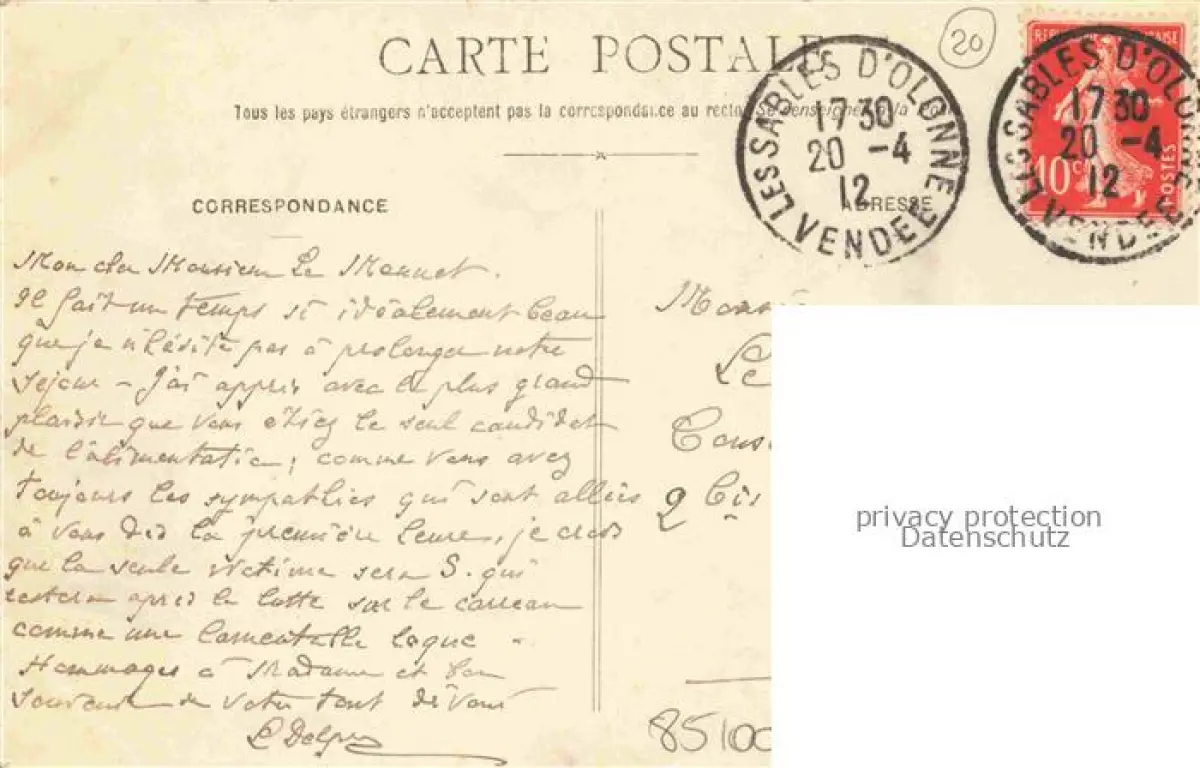 CARTE POSTALE
20
Tous les pays étrangers n'acceptent pas la correspondance au recto (Se renseigner à la
RÉPUBLIQUE FRANÇAISE
10 c POSTES
LES SABLES D'OLONNE
17 30
20 -4
12
VENDEE
LES SABLES D'OLONNE
17 30
20 -4
12
VENDEE
CORRESPONDANCE
ADRESSE
Mon cher Monsieur Le Monnet.
Il fait un temps si idéalement beau
que je n'hésite pas à prolonger notre
séjour – J'ai appris avec le plus grand
plaisir que vous étiez le seul candidat
de l'alimentation; comme vous avez
toujours les sympathies qui sont allées
à vous dès la première heure, je crois
que la seule victime sera S. qui
restera après la lutte sur le carreau
comme une lamentable loque -
Hommages à Madame et bon
souvenir de votre tout dévoué
Mons
Le
Cons
9 bis
85100
privacy protection
Datenschutz